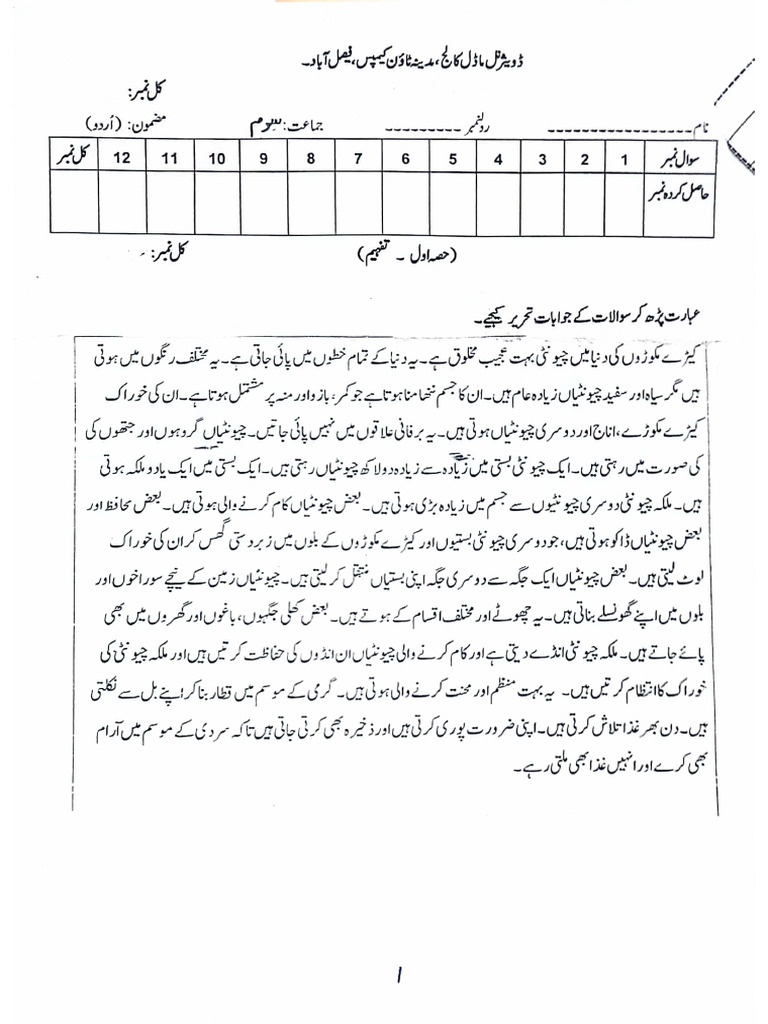 ڈویژنل ماڈل کالج، مدینہ ٹاؤن کیمپس، فیصل آباد۔
کل نمبر:
نام ---------------- رولنمبر --------- جماعت: سوم مضمون: (اُردو)
سوال نمبر 1 2 3 4 5 6 7 8 9 10 11 12 کل نمبر
حاصل کردہ نمبر
(حصہ اول ۔ تفہیم) کل نمبر:
عبارت پڑھ کر سوالات کے جوابات تحریر کیجیے۔
کیڑے مکوڑوں کی دنیا میں چیونٹی بہت عجیب مخلوق ہے۔ یہ دنیا کے تمام خطوں میں پائی جاتی ہے۔ یہ مختلف رنگوں میں ہوتی
ہیں مگر سیاہ اور سفید چیونٹیاں زیادہ عام ہیں۔ ان کا جسم ننھا منا ہوتا ہے جو کمر، بازو اور منہ پر مشتمل ہوتا ہے۔ ان کی خوراک
کیڑے مکوڑے، اناج اور دوسری چیونٹیاں ہوتی ہیں۔ یہ برفانی علاقوں میں نہیں پائی جاتیں۔ چیونٹیاں گروہوں اور جتھوں کی
کی صورت میں رہتی ہیں۔ ایک چیونٹی بستی میں زیادہ سے زیادہ دو لاکھ چیونٹیاں رہتی ہیں۔ ایک بستی میں ایک یا دو ملکہ ہوتی
ہیں۔ ملکہ چیونٹی دوسری چیونٹیوں سے جسم میں زیادہ بڑی ہوتی ہیں۔ بعض چیونٹیاں کام کرنے والی ہوتی ہیں۔ بعض محافظ اور
بعض چیونٹیاں ڈاکو ہوتی ہیں، جو دوسری چیونٹی بستیوں اور کیڑے مکوڑوں کے بلوں میں زبردستی گھس کر ان کی خوراک
لوٹ لیتی ہیں۔ بعض چیونٹیاں ایک جگہ سے دوسری جگہ اپنی بستیاں منتقل کر لیتی ہیں۔ چیونٹیاں زمین کے نیچے سوراخوں اور
بلوں میں اپنے گھونسلے بناتی ہیں۔ یہ چھوٹے اور مختلف اقسام کے ہوتے ہیں۔ بعض کھلی جگہوں، باغوں اور گھروں میں بھی
پائے جاتے ہیں۔ ملکہ چیونٹی انڈے دیتی ہے اور کام کرنے والی چیونٹیاں ان انڈوں کی حفاظت کرتیں ہیں اور ملکہ چیونٹی کی
خوراک کا انتظام کرتیں ہیں۔ یہ بہت منظم اور محنت کرنے والی ہوتی ہیں۔ گرمی کے موسم میں قطار بنا کر اپنے بل سے نکلتی
ہیں۔ دن بھر غذا تلاش کرتی ہیں۔ اپنی ضرورت پوری کرتی ہیں اور ذخیرہ بھی کرتی جاتی ہیں تاکہ سردی کے موسم میں آرام
بھی کرے اور انہیں غذا بھی ملتی رہے۔
1